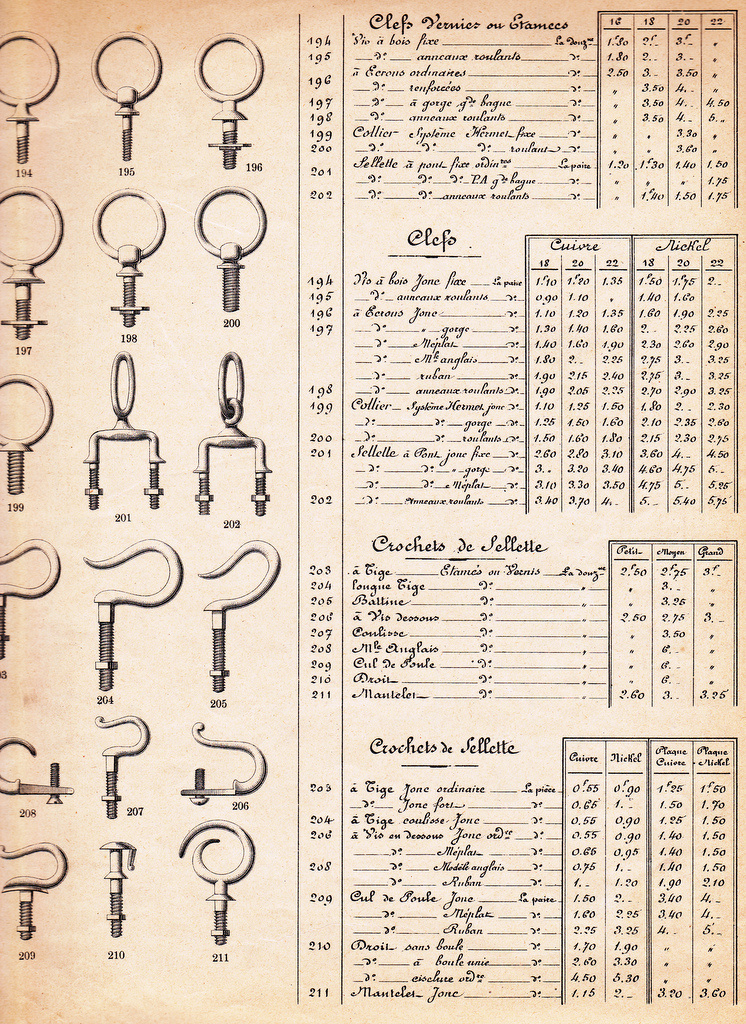 194
195
196
197
198
200
199
201
202
03
204
205
208
207
206
209
210
211
Clefs Vernies ou Etamées 16 18 20 22
194 Vis à bois fixe La douzne 1f80 2f_ 3f_ "
195 _do_ anneaux roulants do 1.80 2._ 3._ "
196 à Ecrous ordinaires do 2.50 3._ 3.50 "
_do_ renforcées do " 3.50 4._ "
197 _do_ à gorge gde bague do " 3.50 4._ 4.50
198 _do_ anneaux roulants do " 3.50 4._ 5._
199 Collier Système Hermet fixe do " " 3.30 "
200 _do_ _do_ roulant do " " 3.60 "
201 Sellette à pont fixe ordinres La paire 1.20 1f30 1.40 1.50
_do_ do_ do_ P.A gde bague do " " " 1.75
202 _do_ do_ anneaux roulants do " 1f40 1.50 1.75
Clefs Cuivre Nickel
18 20 22 18 20 22
194 Vis à bois Jonc fixe La paire 1f10 1f20 1.35 1f50 1f75 2._
195 _do_ anneaux roulants do 0.90 1.10 " 1.40 1.60
196 à Ecrous Jonc do 1.10 1.20 1.35 1.60 1.90 2.25
197 _do_ " gorge do 1.30 1.40 1.60 2._ 2.25 2.60
_do_ Méplat do 1.40 1.60 1.90 2.30 2.60 2.90
_do_ Mle anglais do 1.80 2._ 2.25 2.75 3._ 3.25
_do_ ruban do 1.90 2.15 2.40 2.75 3._ 3.25
198 _do_ anneaux roulants do 1.90 2.05 2.25 2.70 2.90 3.25
199 Collier Système Hermet jonc do 1.10 1.25 1.50 1.80 2._ 2.30
_do_ do_ gorge do 1.25 1.50 1.60 2.10 2.35 2.60
200 _do_ do_ roulants do 1.50 1.60 1.80 2.15 2.30 2.75
201 Sellette à Pont jonc fixe do 2.60 2.80 3.10 3.60 4._ 4.50
_do_ do_ " gorge do 3." 3.20 3.40 4.60 4.75 5._
_do_ do_ " Méplat do 3.10 3.30 3.50 4.75 5._ 5.25
202 _do_ Anneaux roulants do 3.40 3.70 4._ 5._ 5.40 5.75
Crochets de Sellette Petit Moyen Grand
203 à Tige Etamés ou Vernis La douzne 2f50 2f75 3f
204 longue Tige do " " 3._ "
205 Battine do " " 3.25 "
206 à Vis dessous do " 2.50 2.75 3._
207 Coulisse do " " 3.50 "
208 Mle Anglais do " " 6._ "
209 Cul de Poule do " " 6._ "
210 Droit do " " 6._ "
211 Mantelet do " 2.60 3._ 3.25
Crochets de Sellette Cuivre Nickel Plaque Cuivre Plaque Nickel
203 à Tige Jonc ordinaire La pièce 0f55 0f90 1f25 1f50
_do_ Jonc fort do 0.65 1._ 1.50 1.70
204 à Tige coulisse Jonc do 0.55 0.90 1.25 1.50
206 à Vis en dessous Jonc ordre do 0.55 0.90 1.40 1.50
_do_ Méplat do 0.65 0.95 1.40 1.50
208 _do_ Modèle anglais do 0.75 1._ 1.40 1.50
_do_ Ruban do 1._ 1.20 1.90 2.10
209 Cul de Poule Jonc La paire 1.50 2._ 3.40 4._
_do_ Méplat do 1.60 2.25 3.40 4._
_do_ Ruban do 2.25 3.25 4._ 5._
210 Droit sans boule do 1.70 1.90 " "
_do_ à boule unie do 2.60 3.30 " "
_do_ ciselure ordre do 4.50 5.30 " "
211 Mantelet Jonc do 1.15 2._ 3.20 3.60